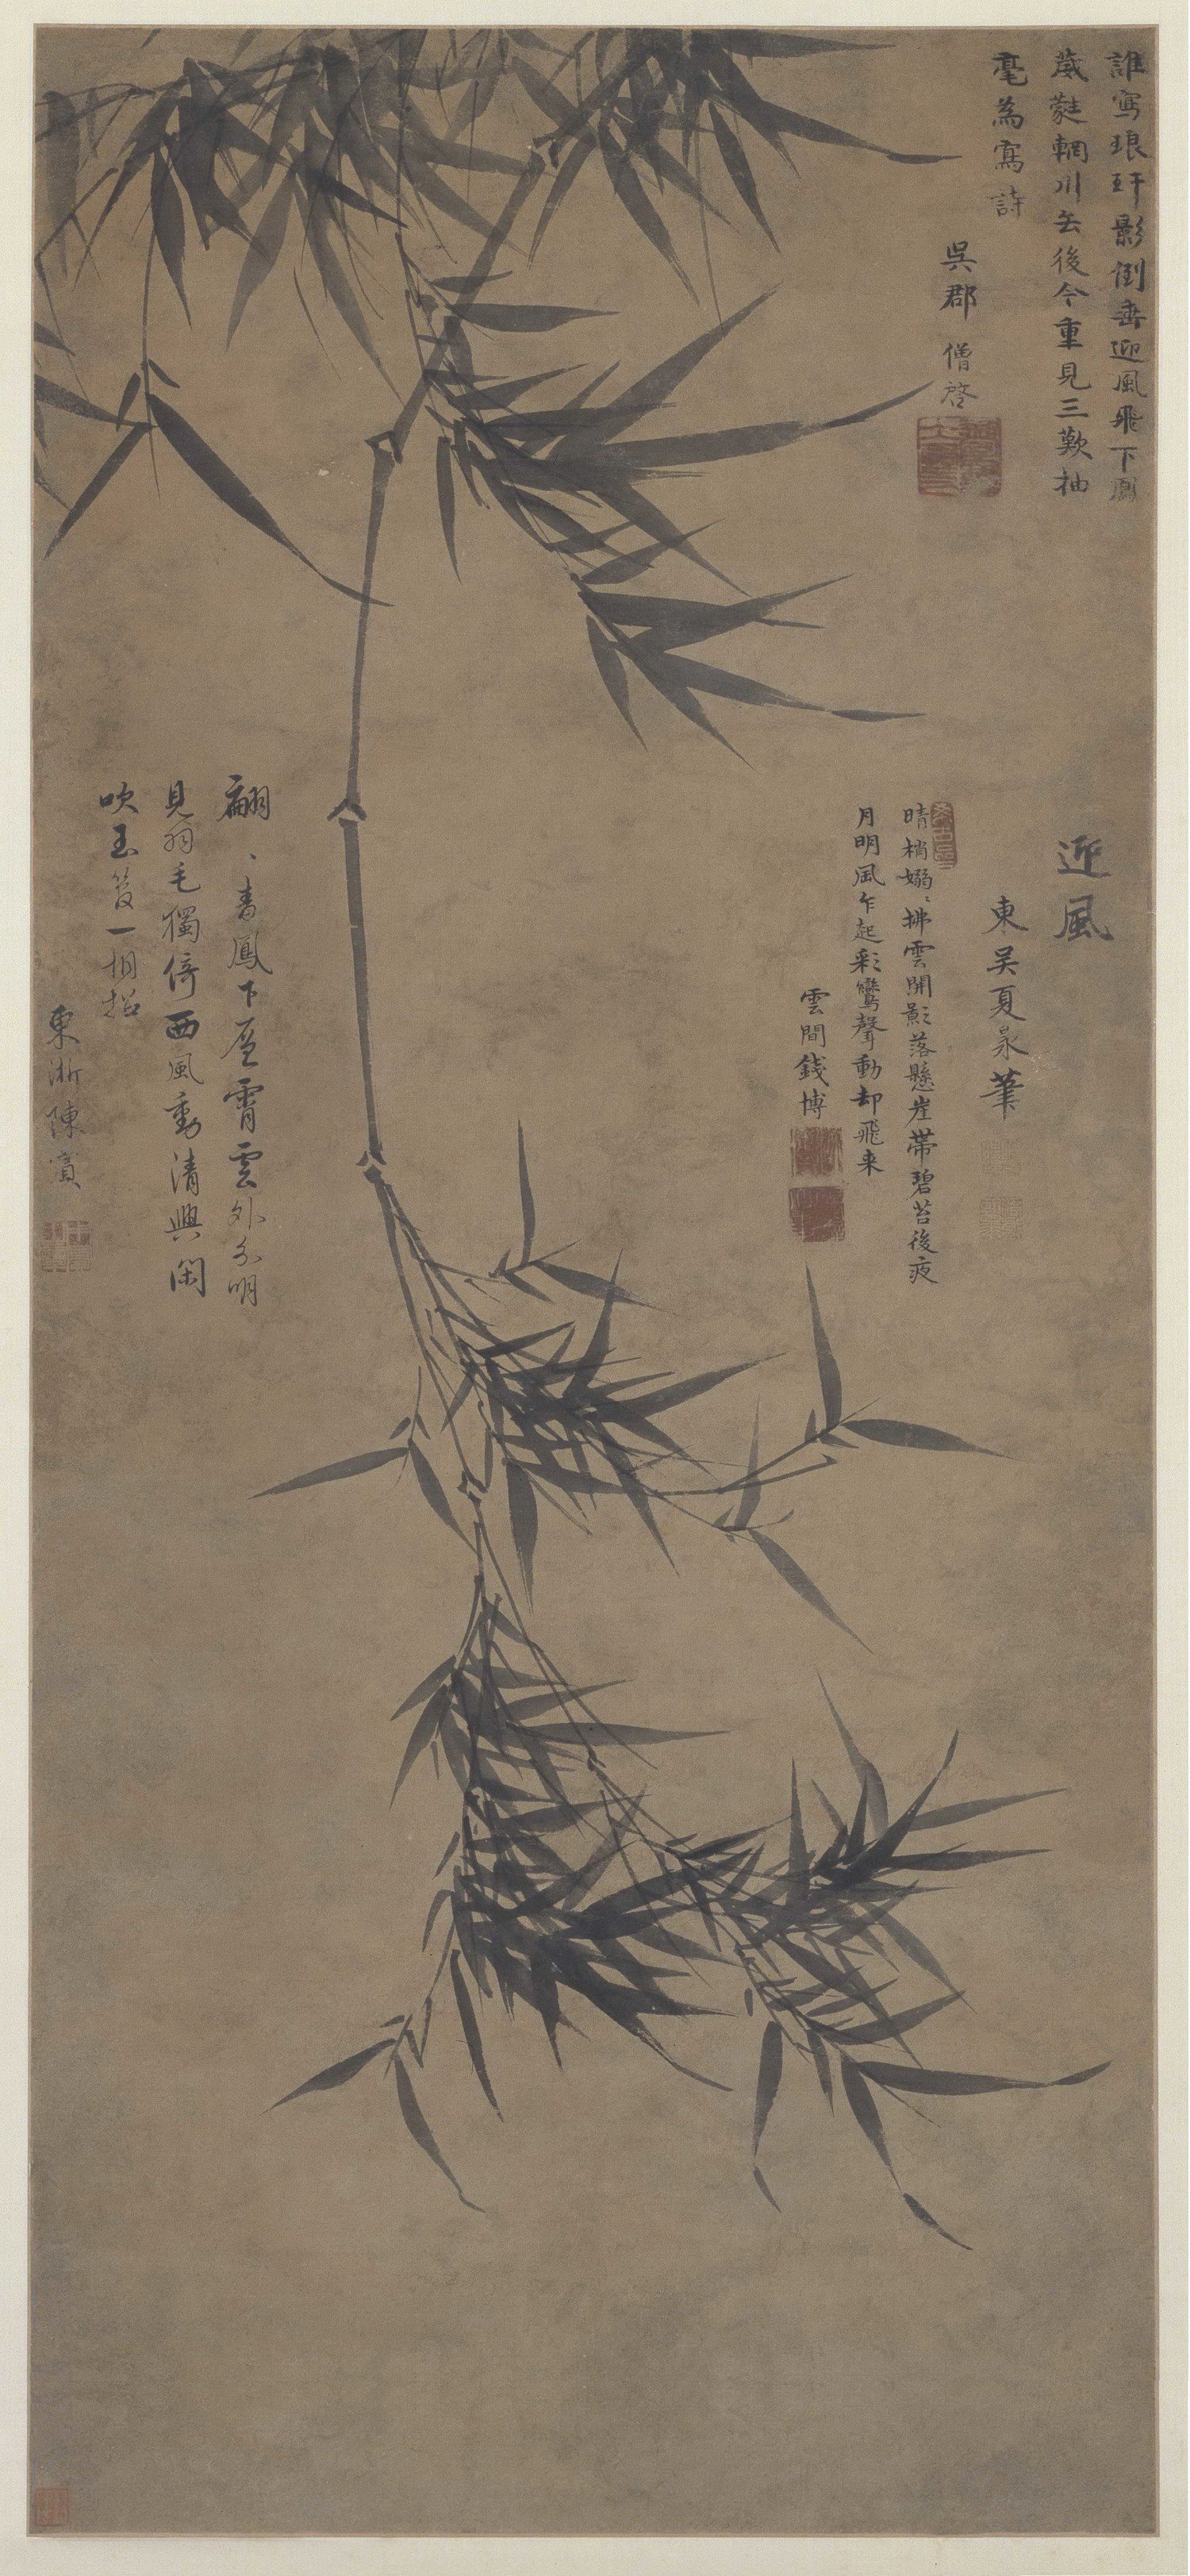 誰寫琅玕影倒垂迎風飛下鳳
葳蕤輞川去後今重見三歎抽
毫為寫詩
吳郡 僧啓
迎風
東吳夏㫤筆
晴梢嫋〻拂雲開影落懸崖帶碧苔後夜
月明風乍起彩鸞聲動却飛来
雲間錢博
翩〻青鳳下層霄雲外分明
見羽毛獨倚西風動清興閑
吹玉笙一相招
東浙陳賓